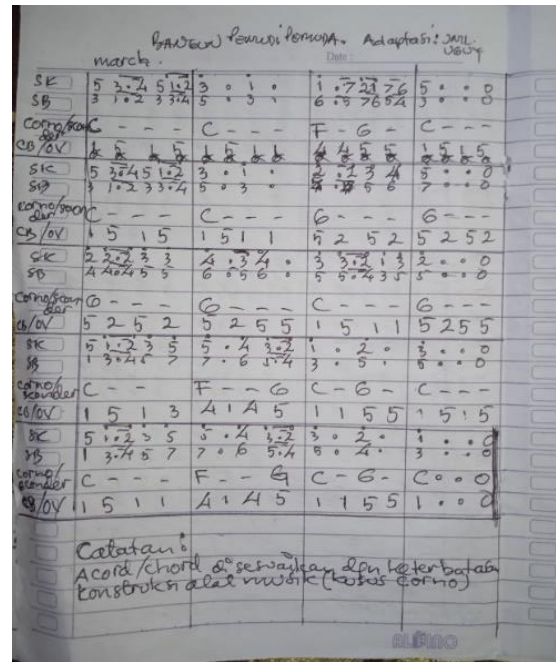 BANGUN PEMUDI PEMUDA. Adaptasi:
march. Date :
SK 5 3.4 5 1.2 | 3 . 1 . | 1 .7 21 76 | 5 . . 0
SB 3 1.2 3 3.4 | 5 . 3 . | 6 .5 76 54 | 3 . . 0
C - - - | C - - - | F - G - | C - - -
CB/OV 1 5 1 5 | 1 5 1 5 | 4 4 5 5 | 1 5 1 5
SK 5 3.4 5 1.2 | 3 . 1 . | 2 .2 3 4 | 5 . . 0
SB 3 1.2 3 3.4 | 5 . 3 . | 5 6 | 7 . . 0
C - - - | C - - - | G - - - | G - - -
CB/OV 1 5 1 5 | 1 5 1 1 | 5 2 5 2 | 5 2 5 2
SK 2 2.2 3 2 | 4 . 3 4 . | 3 3.2 1 3 | 2 . . 0
SB 4 4.4 5 5 | 6 . 5 6 . | 5 5.4 3 5 | 5 . . 0
G - - - | G - - - | C - - - | G - - -
CB/OV 5 2 5 2 | 5 2 5 5 | 1 5 1 1 | 5 2 5 5
SK 5 1.2 3 5 | 5 . 4 3.2 | 1 . 2 . | 3 . . 0
SB 1 3.4 5 7 | 7 . 6 5.4 | 3 . 5 . | 5 . . 0
C - - - | F - - G | C - G - | C - - -
CB/OV 1 5 1 3 | 4 1 4 5 | 1 1 5 5 | 1 5 1 5
SK 5 1.2 3 5 | 5 . 4 3.2 | 3 . 2 . | 1 . . 0
SB 1 3.4 5 7 | 7 . 6 5.4 | 5 . 4 . | 3 . . 0
C - - - | F - - G | C - G - | C . . 0
CB/OV 1 5 1 1 | 4 1 4 5 | 1 1 5 5 | 1 . . 0
Catatan :
Acord/chord disesuaikan dgn keterbatasan
konstruksi alat musik (kusus corno)